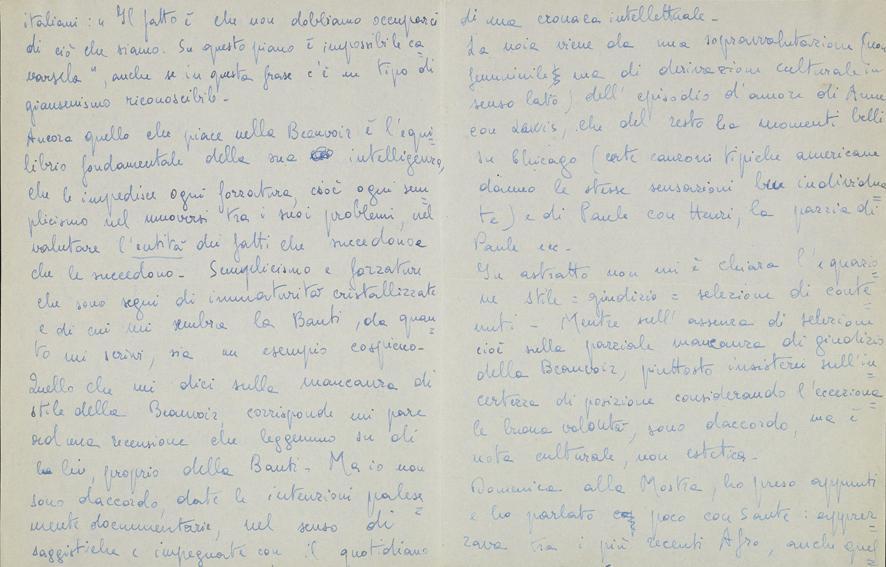 italiani: "Il fatto è che non dobbiamo occuparci
di ciò che siamo. Su questo piano è impossibile ca
varsela", anche se in questa frase c'è un tipo di
giansenismo riconoscibile.
Ancora quello che piace nella Beauvoir è l'equi
librio fondamentale della sua intelligenza,
che le impedisce ogni forzatura, cioè ogni sem
plicismo nel muoversi tra i suoi problemi, nel
valutare l'entità dei fatti che succedono a
che le succedono. Semplicismo e forzature
che sono segni di immaturità cristallizzate
e di cui mi sembra la Banti, da quan
to mi scrivi, sia un esempio cospicuo.
Quello che mi dici sulla mancanza di
stile della Beauvoir, corrisponde mi pare
ad una recensione che leggemmo su di
lei, proprio della Banti. Ma io non
sono daccordo, date le intenzioni palese
mente documentarie, nel senso di
saggistiche e impegnate con il quotidiano
di una cronaca intellettuale.
La noia viene da una sopravvalutazione (non
femminile ma di derivazione culturale in
senso lato) dell'episodio d'amore di Anne
con Lewis, che del resto ha momenti belli
su Chicago (certe canzoni tipiche americane
danno le stesse sensazioni ben individua
te) e di Paule con Henri, la pazzia di
Paule ecc.
In astratto non mi è chiara l'equazio
ne stile = giudizio = selezione di conte
nuti. Mentre sull'assenza di selezione
cioè sulla parziale mancanza di giudizio
della Beauvoir, piuttosto insisterei sull'in
certezza di posizione considerando l'ecceziona
le buona volontà, sono daccordo, ma è
nota culturale, non estetica.
Domenica alla Mostra, ho preso appunti
e ho parlato poco con Sante: apprez
zava tra i più recenti Afro, anche quel